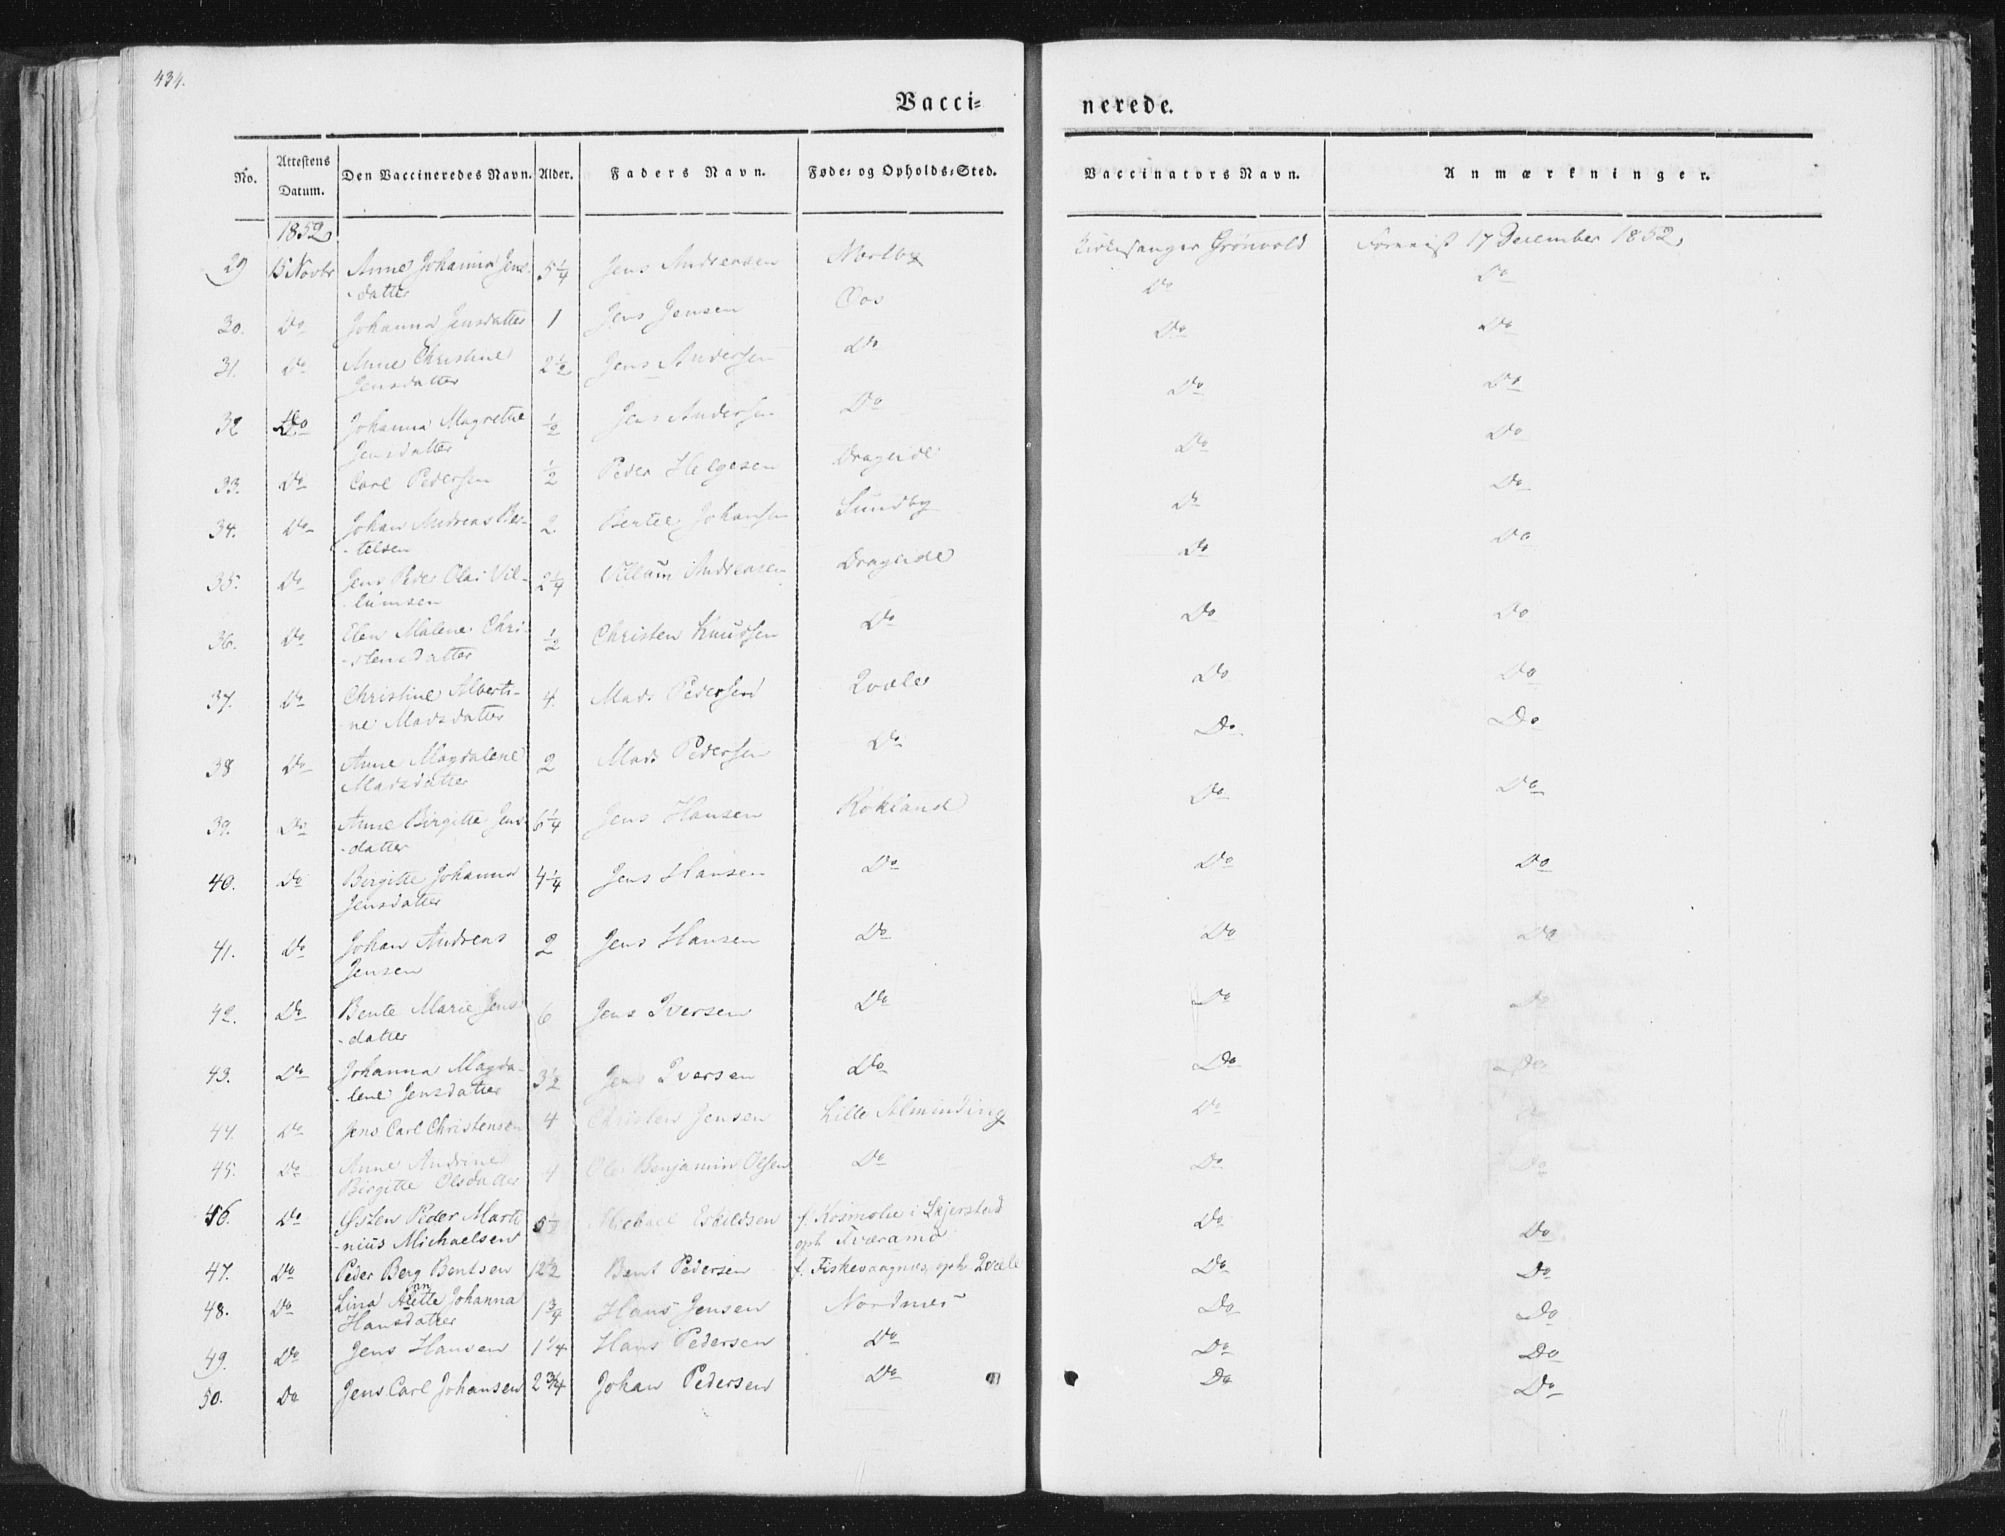 434.
Vacci= nerede.
No. Attestens Datum. Den Vaccineredes Navn. Alder. Faders Navn. Føde= og Opholds=Sted. Vaccinators Navn. Anmærkninger.
1852,
29 15 Novbr Anne Johanna Jens- 5 1/4 Jens Andreasen Kirkesanger Grönvold Foreviist 17 December 1852,
-datter Do Do
30. Do Johanna Jensdatter 1 Jens Jensen Do Do
31. Do Anne Christine 2 1/2 Jens Andersen Do
Jensdatter Do Do
32 Do Johanna Magrethe 1/2 Jens Andersen Do
Jensdatter Do Do
33. Do Carl Pedersen 1/2 Peder Helgesen Drageide
34. Do Johan Andreas Ber- 2. Bertel Johansen Sundby Do Do
-telsen
35. Do Jens Peder Olai Vil- 2 1/4 Villum Andreasen Drageide Do Do
-lumsen
36. Do Elen Malene Chri- 1/2 Christen Knudsen Do Do Do
-stensdatter
37. Do Christine Alberti- 4. Mads Pedersen Qvæle Do Do
ne Madsdatter
38 Do Anne Magdalene 2 Mads Pedersen Do Do Do
Madsdatter
39. Do Anne Birgitte Jens- 6 1/4 Jens Hansen Rökland Do Do
-datter
40. Do Bergitte Johanna 4 1/4 Jens Hansen Do Do Do
Jensdatter
41. Do Johan Andreas 2 Jens Hansen Do Do Do
Jensen
42. Do Bente Marie Jens 6 Jens Iversen Do Do Do
-datter
43. Do Johanna Magda- 3 1/2 Jens Iversen Do Do Do
-lene Jensdatter
44. Do Jens Carl Christensen 4 Christen Jensen Lille Alminding Do Do
45. Do Anne Andrine 4 Ole Benjamin Olsen Do Do Do
Birgitte Olsdatter
46. Do Østen Peder Marti 5 1/2 Michael Eskildsen f. Kosmoe i Skjerstad Do Do
-nius Michaelsen oph Tværamo
47. Do Peder Berg Bentsen 12 1/2 Bent Pedersen f. Fiskevaagnes, oph. Qvæle Do Do
48. Do Lina Anette Johanna 1 3/4 Hans Jensen Nordnes Do Do
Hansdatter
49. Do Jens Hansen 1 1/4 Hans Pedersen Do Do Do
50. Do Jens Carl Johansen 2 3/4 Johan Pedersen Do Do Do